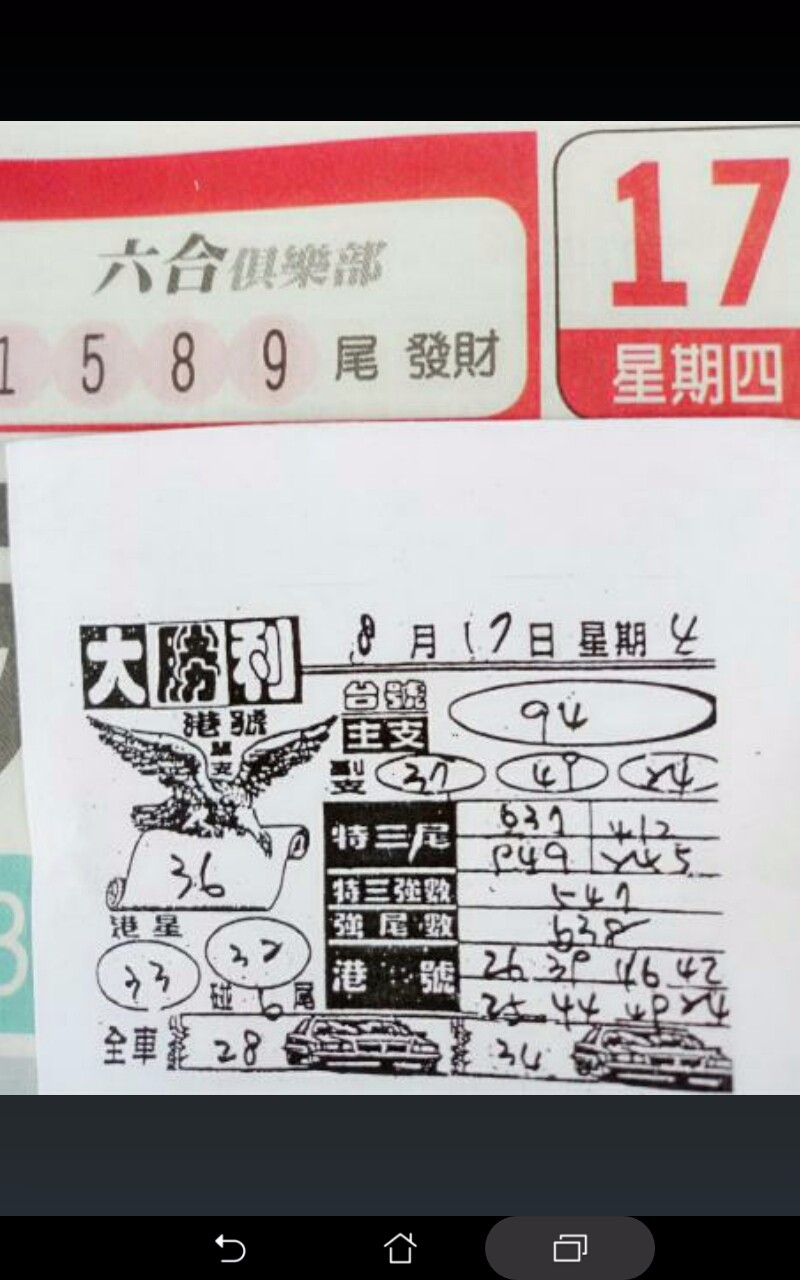 六合俱樂部
1 5 8 9 尾 發財
17
星期四
大勝利
8 月 17 日 星期 4
港號
單支
36
港星
33
32
碰 6 尾
台號
主支
94
副支 37 49
特三尾
637 412
849
特三強數 547
強尾數 638
港 號
26 39 46 42
25 44 49
全車 28 34